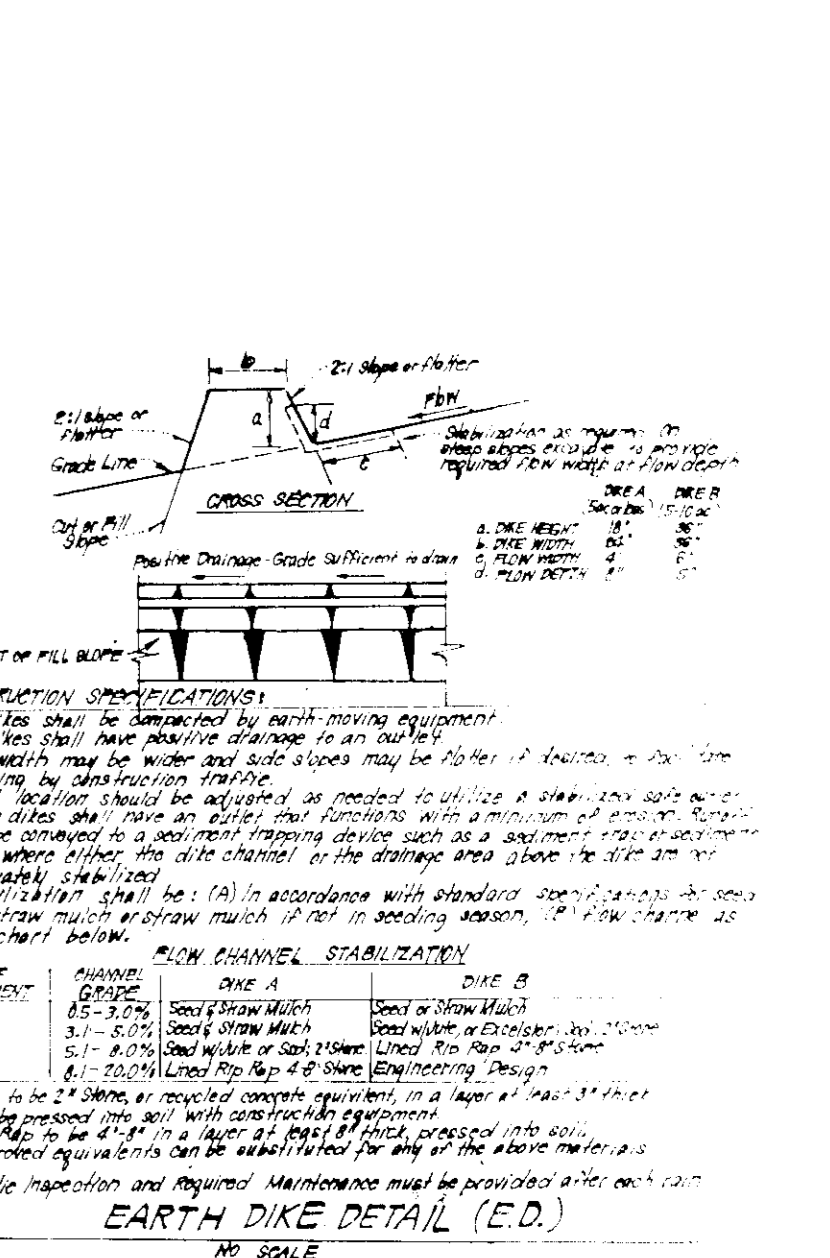 b
2:1 Slope or flatter
Flow
2:1 slope or
flatter
a
d
Stabilization as required. On
steep slopes excavate to provide
required flow width at flow depth
Grade Line
c
CROSS SECTION
Cut or Fill
Slope
DIKE A DIKE B
(5-10 ac)
a. DIKE HEIGHT 18" 36"
b. DIKE WIDTH 36"
c. FLOW WIDTH 4' 6'
d. FLOW DEPTH 8"
Positive Drainage-Grade Sufficient to drain
T OF FILL SLOPE
RUCTION SPECIFICATIONS:
kes shall be compacted by earth-moving equipment.
kes shall have positive drainage to an outlet.
width may be wider and side slopes may be flatter if desired, to
ing by construction traffic.
location should be adjusted as needed to utilize a stabilized safe
dikes shall have an outlet that functions with a minimum of erosion. Runoff
e conveyed to a sediment trapping device such as a sediment trap or sediment
where either the dike channel or the drainage area above the dike are not
uately stabilized
ilization shall be: (A) in accordance with standard specifications for seed
traw mulch or straw mulch if not in seeding season, (B) flow channel as
chart below.
FLOW CHANNEL STABILIZATION
CHANNEL
GRADE DIKE A DIKE B
0.5-3.0% Seed & Straw Mulch Seed or Straw Mulch
3.1-5.0% Seed & Straw Mulch Seed w/Jute, or Excelsior; Sod; 2" Stone
5.1-8.0% Seed w/Jute or Sod; 2" Stone Lined Rip Rap 4"-8" Stone
8.1-20.0% Lined Rip Rap 4-8" Stone Engineering Design
to be 2" Stone, or recycled concrete equivilent, in a layer at least 3" thick
be pressed into soil with construction equipment.
Rap to be 4"-8" in a layer at least 8" thick, pressed into soil.
roved equivalents can be substituted for any of the above materials
ic Inspection and Required Maintenance must be provided after each rain
EARTH DIKE DETAIL (E.D.)
NO SCALE